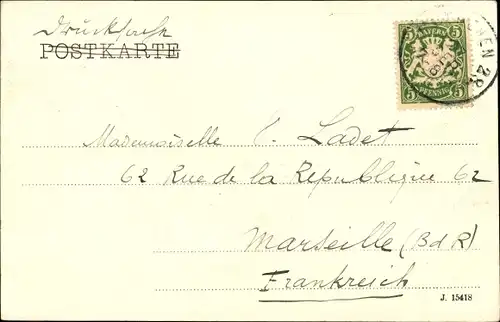 Drucksache
POSTKARTE
BAYERN
5 5
PFENNIG
MÜNCHEN 2.
Mademoiselle C. Ladet
62 Rue de la Republique 62
Marseille (B d R)
Frankreich
J. 15418